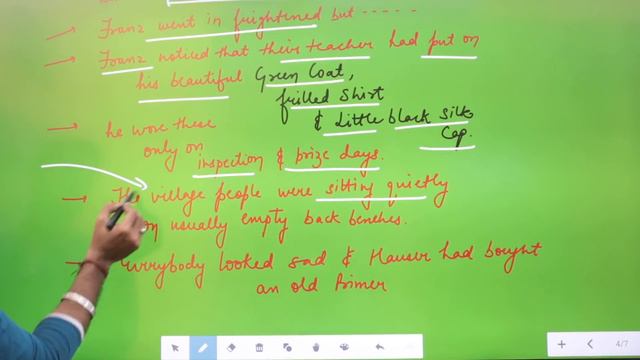 → Franz went in frightened but -----
→ Franz noticed that their teacher had put on
his beautiful Green Coat,
frilled Shirt
& Little black silk
Cap.
→ he wore these
only on
inspection & prize days.
→ The village people were sitting quietly
on usually empty back benches.
→ Everybody looked sad & Hauser had bought
an old Primer
4/7